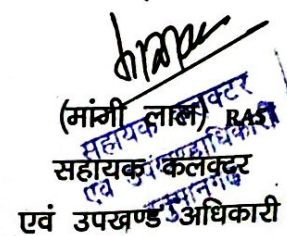 (मांगी लाल) RAS
सहायक कलक्टर
एवं उपखण्ड अधिकारी
सहायक कलक्टर
एवं उपखण्डाधिकारी
हनुमानगढ़